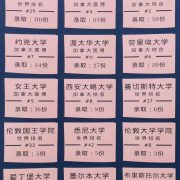 加拿大医博
#29
录取：110份
加拿大医博
录取：65份
世界排名
录取：63份
约克大学
加拿大综合
#7
录取：54份
渥太华大学
加拿大医博
#11
录取：27份
劳里埃大学
加拿大综合
#6
录取：20份
女王大学
加拿大医博
#5
录取：16份
西安大略大学
加拿大医博
#8
录取：11份
曼切斯特大学
世界排名
录取：6份
伦敦国王学院
世界排名
#33
录取：5份
悉尼大学
世界排名
#42
录取：5份
伦敦大学学院
世界排名
#8
录取：5份
爱丁堡大学
墨尔本大学
布里斯托尔大学